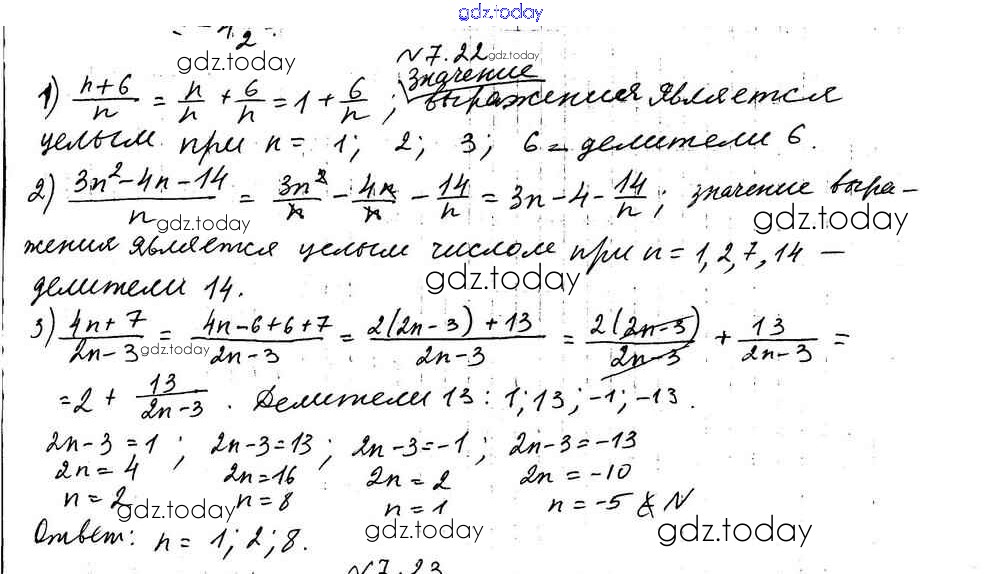 gdz.today
1.2
gdz.today
№7.22 gdz.today
1) (n+6)/n = n/n + 6/n = 1 + 6/n ; значение выражения является
целым при n = 1; 2; 3; 6 – делители 6.
2) (3n²-4n-14)/n = 3n²/n - 4n/n - 14/n = 3n-4-14/n ; значение выра-
gdz.today gdz.today
жения является целым числом при n = 1, 2, 7, 14 –
gdz.today
делители 14.
3) (4n+7)/(2n-3) = (4n-6+6+7)/(2n-3) = (2(2n-3)+13)/(2n-3) = 2(2n-3)/(2n-3) + 13/(2n-3) =
gdz.today
= 2 + 13/(2n-3) . Делители 13: 1; 13; -1; -13.
2n-3=1 ; 2n-3=13 ; 2n-3=-1 ; 2n-3=-13
2n=4 2n=16 2n=2 2n=-10
n=2 n=8 n=1 n=-5 ∉ N
gdz.today gdz.today gdz.today
Ответ: n = 1; 2; 8.
№7.23